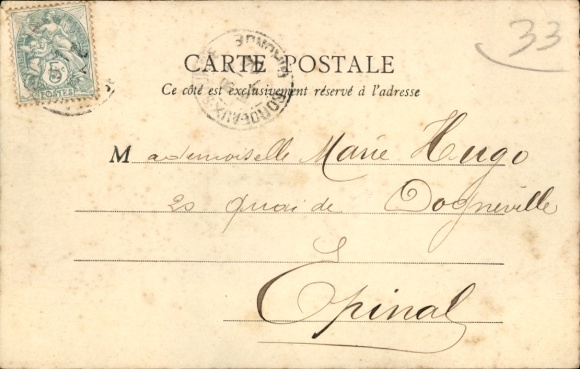 33
CARTE POSTALE
Ce côté est exclusivement réservé à l'adresse
BORDEAUX
GIRONDE
5
POSTES
Mademoiselle Marie Hugo
20 Quai de Dogneville
Epinal